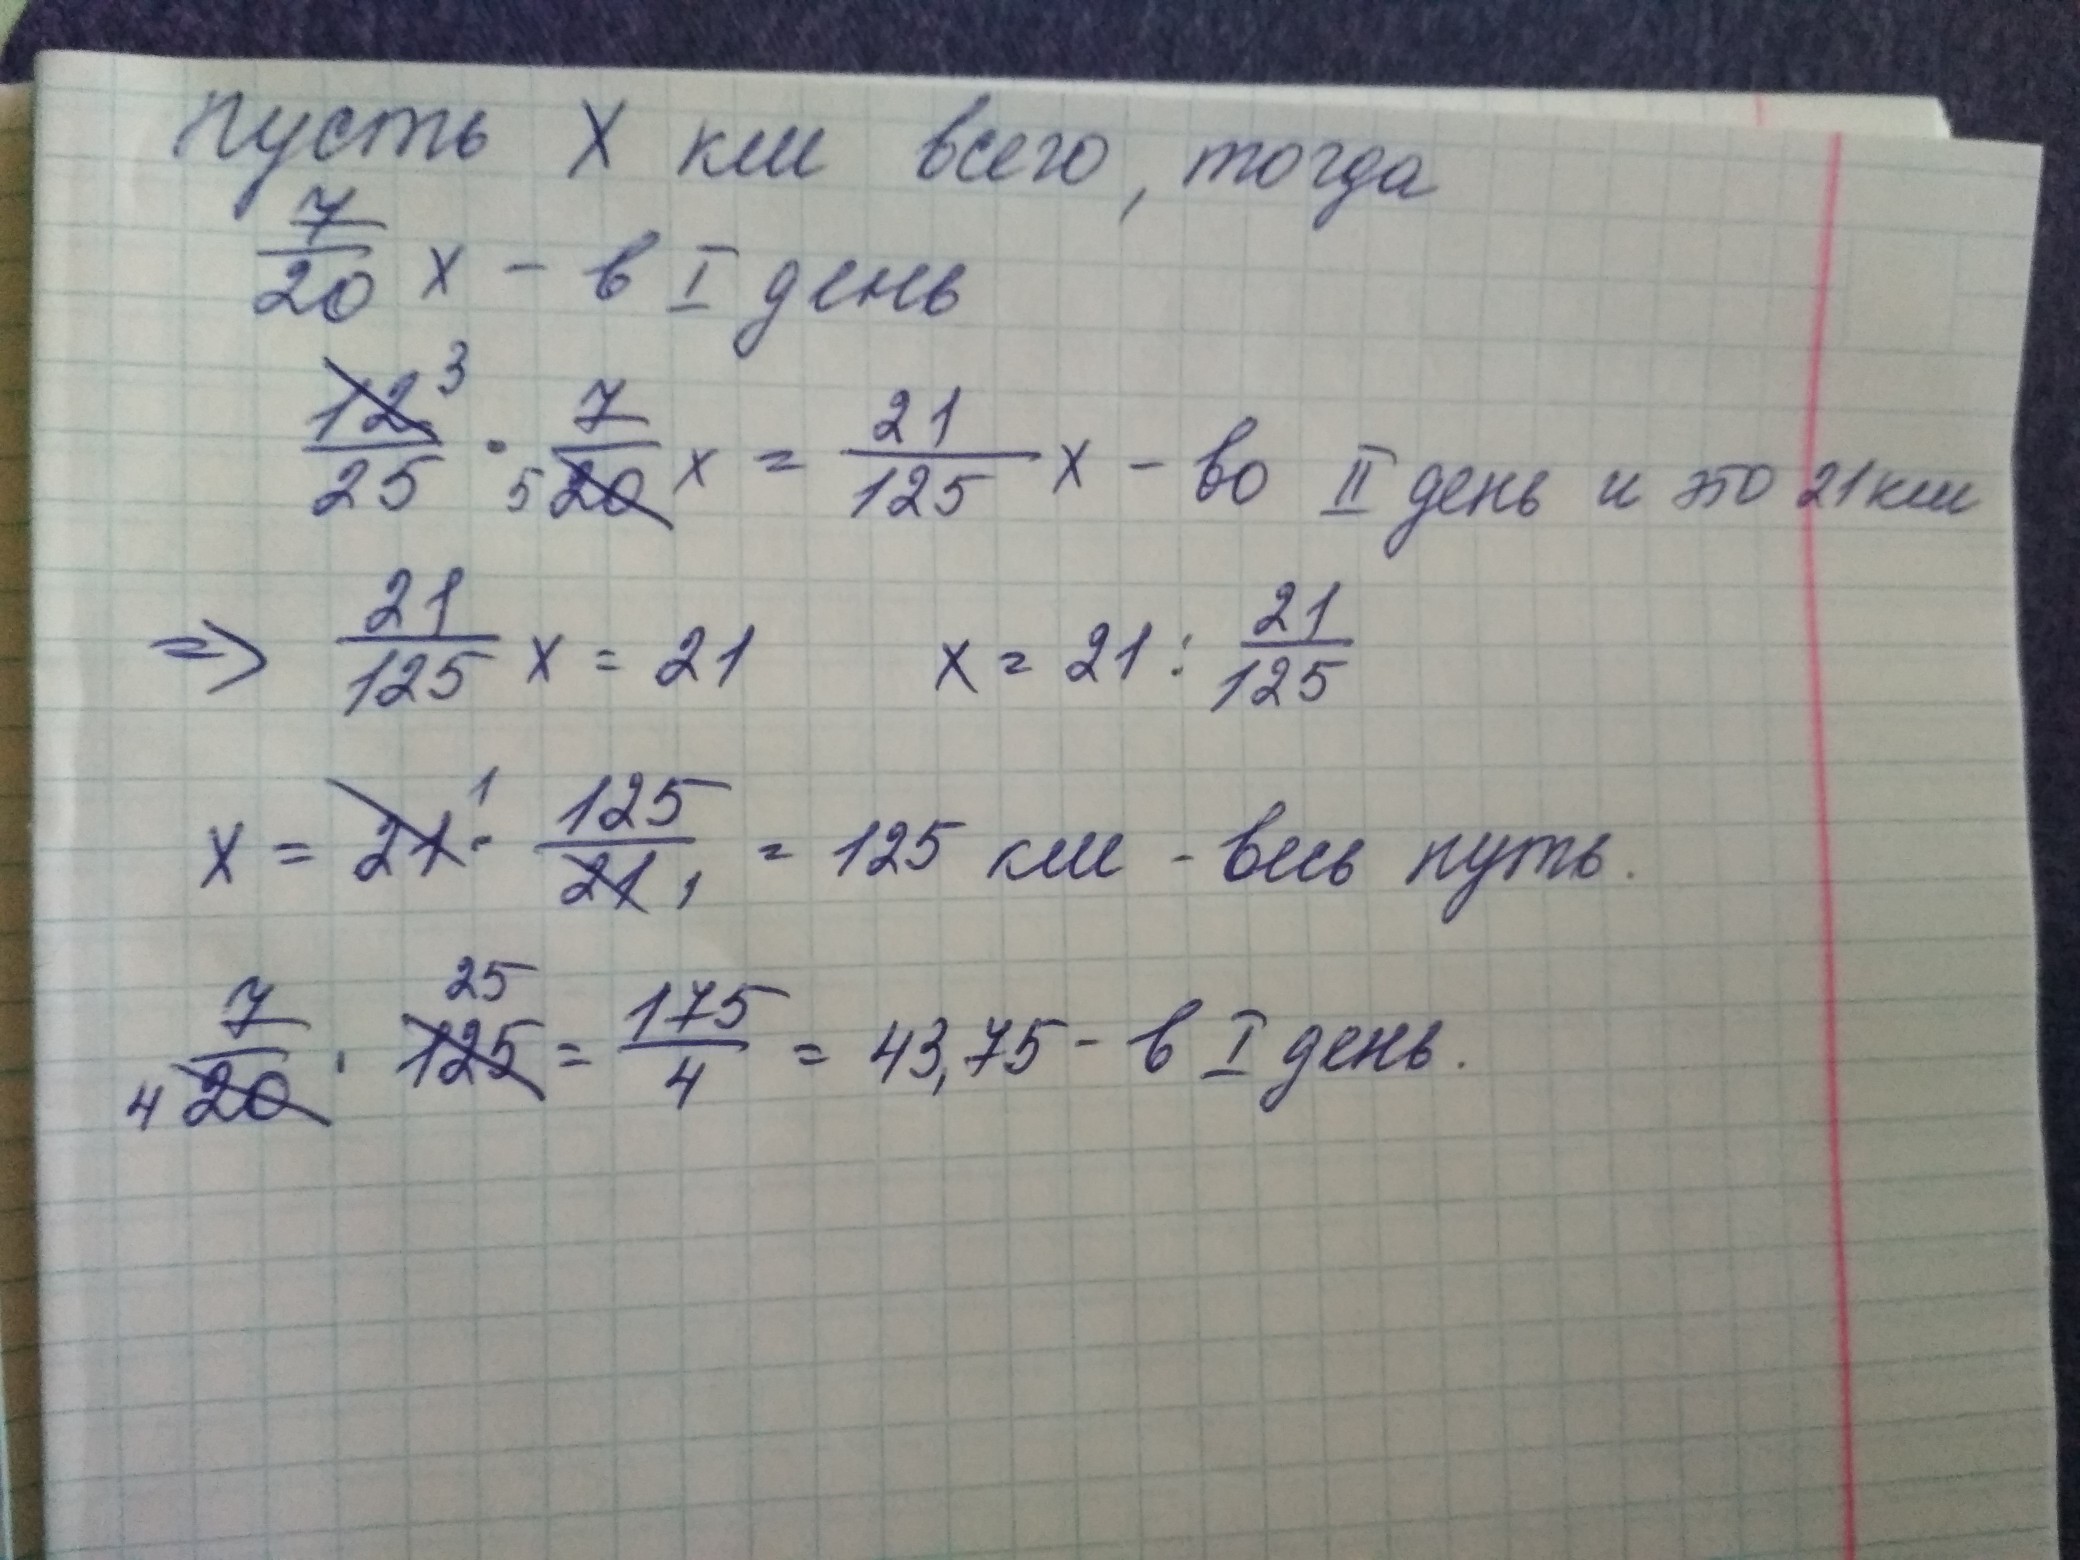 пусть X км всего, тогда
7/20 x - в I день
12/25 3 · 7/20 5 x = 21/125 x - во II день и это 21 км
=> 21/125 x = 21 x = 21 : 21/125
x = 21 1 · 125/21 1 = 125 км - весь путь.
7/20 4 · 125 25 = 175/4 = 43,75 - в I день.